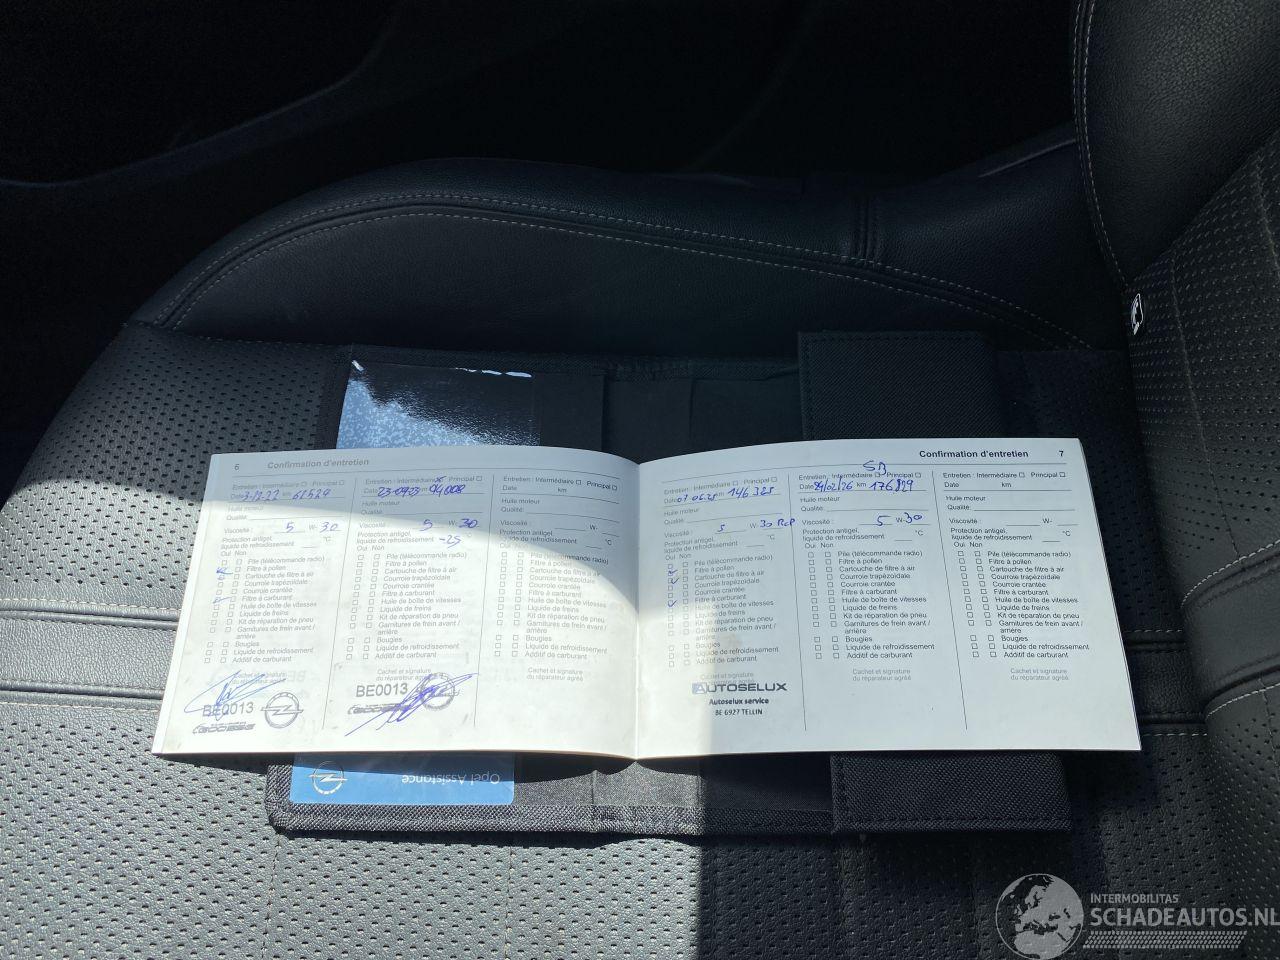 6 Confirmation d'entretien
Entretien : Intermédiaire Principal
Date 3-12-22 km 61529
Huile moteur
Qualité:
Viscosité : 5 W- 30
Protection antigel,
liquide de refroidissement °C
Oui Non
Pile (télécommande radio)
Filtre à pollen
Cartouche de filtre à air
Courroie trapézoïdale
Courroie crantée
Filtre à carburant
Huile de boîte de vitesses
Liquide de freins
Kit de réparation de pneu
Garnitures de frein avant /
arrière
Bougies
Liquide de refroidissement
Additif de carburant
Cachet et signature
du réparateur agréé
BE0013
Entretien : Intermédiaire Principal
Date km 94008
Huile moteur
Qualité:
Viscosité : 5 W- 30
Protection antigel,
liquide de refroidissement -25 °C
Oui Non
Pile (télécommande radio)
Filtre à pollen
Cartouche de filtre à air
Courroie trapézoïdale
Courroie crantée
Filtre à carburant
Huile de boîte de vitesses
Liquide de freins
Kit de réparation de pneu
Garnitures de frein avant /
arrière
Bougies
Liquide de refroidissement
Additif de carburant
Cachet et signature
du réparateur agréé
BE0013
Entretien : Intermédiaire Principal
Date km
Huile moteur
Qualité:
Viscosité : W-
Protection antigel,
liquide de refroidissement °C
Oui Non
Pile (télécommande radio)
Filtre à pollen
Cartouche de filtre à air
Courroie trapézoïdale
Courroie crantée
Filtre à carburant
Huile de boîte de vitesses
Liquide de freins
Kit de réparation de pneu
Garnitures de frein avant /
arrière
Bougies
Liquide de refroidissement
Additif de carburant
Cachet et signature
du réparateur agréé
Confirmation d'entretien 7
Entretien : Intermédiaire Principal
Date km 146 325
Huile moteur
Qualité:
Viscosité : 5 W- 30
Protection antigel,
liquide de refroidissement °C
Oui Non
Pile (télécommande radio)
Filtre à pollen
Cartouche de filtre à air
Courroie trapézoïdale
Courroie crantée
Filtre à carburant
Huile de boîte de vitesses
Liquide de freins
Kit de réparation de pneu
Garnitures de frein avant /
arrière
Bougies
Liquide de refroidissement
Additif de carburant
Cachet et signature
du réparateur agréé
AUTOSELUX
Autoselux service
BE 6927 TELLIN
Entretien : Intermédiaire Principal
Date km
Huile moteur
Qualité:
Viscosité : 5 W- 30
Protection antigel,
liquide de refroidissement °C
Oui Non
Pile (télécommande radio)
Filtre à pollen
Cartouche de filtre à air
Courroie trapézoïdale
Courroie crantée
Filtre à carburant
Huile de boîte de vitesses
Liquide de freins
Kit de réparation de pneu
Garnitures de frein avant /
arrière
Bougies
Liquide de refroidissement
Additif de carburant
Cachet et signature
du réparateur agréé
Entretien : Intermédiaire Principal
Date km
Huile moteur
Qualité:
Viscosité : W-
Protection antigel,
liquide de refroidissement °C
Oui Non
Pile (télécommande radio)
Filtre à pollen
Cartouche de filtre à air
Courroie trapézoïdale
Courroie crantée
Filtre à carburant
Huile de boîte de vitesses
Liquide de freins
Kit de réparation de pneu
Garnitures de frein avant /
arrière
Bougies
Liquide de refroidissement
Additif de carburant
Cachet et signature
du réparateur agréé
Opel Assistance
INTERMOBILITAS
SCHADEAUTOS.NL